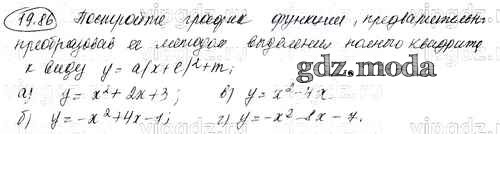 19.86 Постройте график функции, предварительно
преобразовав ее методом выделения полного квадрата
к виду y = a(x + l)² + m;
gdz.moda
а) y = x² + 2x + 3; в) y = x² - 4x
б) y = -x² + 4x - 1; г) y = -x² - 8x - 7.